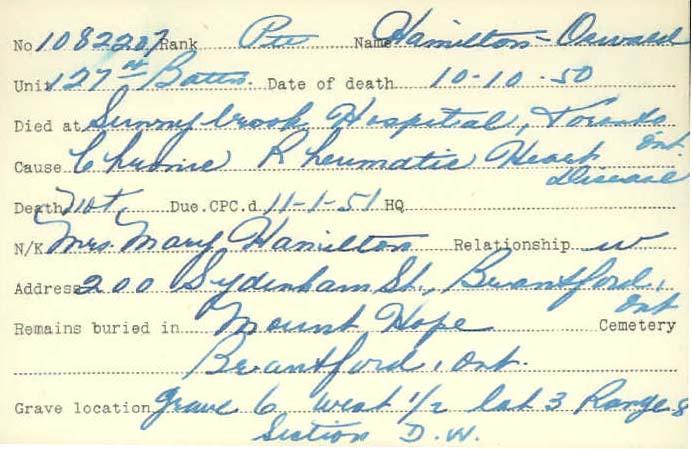 No 1082207 Rank Pte Name Hamilton - Oswald
Unit 127th Battn. Date of death 10-10-50
Died at Sunnybrook Hospital, Toronto Ont.
Cause Chronic Rheumatic Heart Disease
Death Not. Due.CPC.d 11-1-51 HQ
N/K Mrs. Mary Hamilton Relationship w
Address 200 Sydenham St., Brantford, Ont
Remains buried in Mount Hope Cemetery
Brantford, Ont.
Grave location Grave 6 west 1/2 lot 3 Range 8
Section D.W.